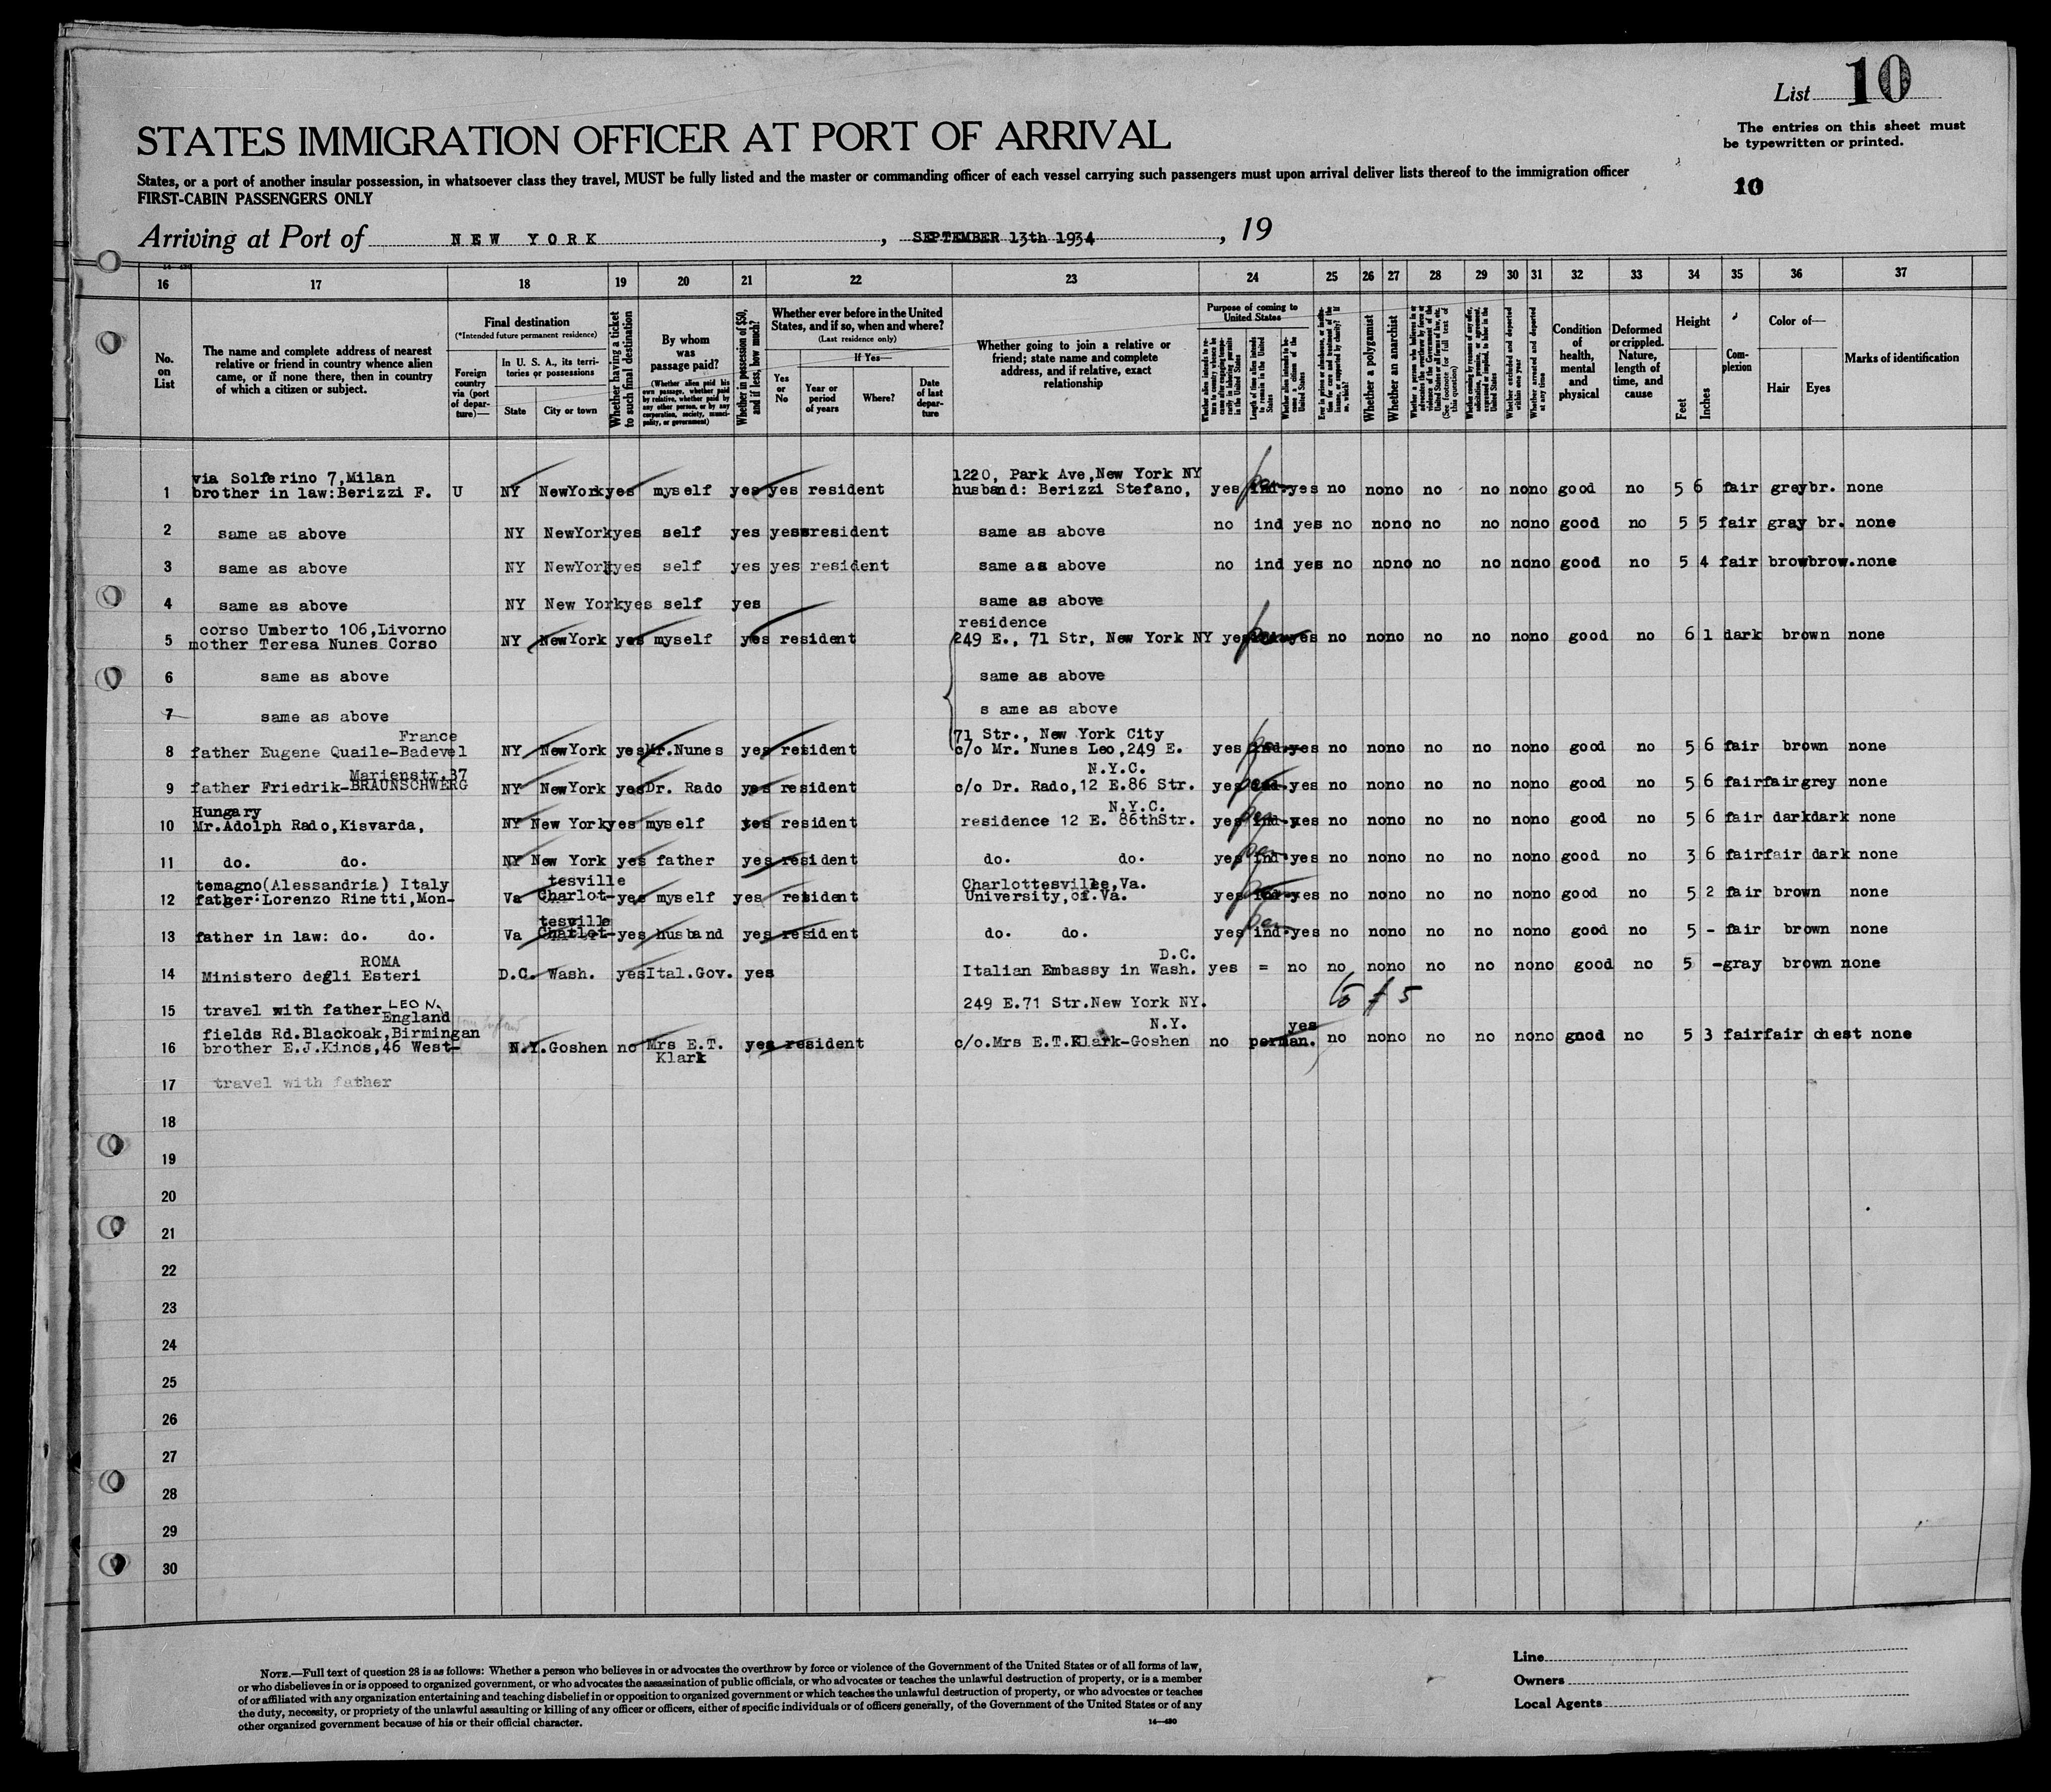 List 10
STATES IMMIGRATION OFFICER AT PORT OF ARRIVAL
The entries on this sheet must
be typewritten or printed.
States, or a port of another insular possession, in whatsoever class they travel, MUST be fully listed and the master or commanding officer of each vessel carrying such passengers must upon arrival deliver lists thereof to the immigration officer
FIRST-CABIN PASSENGERS ONLY
10
Arriving at Port of NEW YORK, SEPTEMBER 13th 1934, 19
16 17 18 19 20 21 22 23 24 25 26 27 28 29 30 31 32 33 34 35 36 37
No. on List
The name and complete address of nearest relative or friend in country whence alien came, or if none there, then in country of which a citizen or subject.
Final destination
(*Intended future permanent residence)
Foreign country via (port of departure)—
In U. S. A., its territories or possessions
State
City or town
Whether having a ticket to such final destination
By whom was passage paid?
(Whether alien paid his own passage, whether paid by relative, whether paid by any other person, or by any corporation, society, municipality, or government)
Whether in possession of $50, and if less, how much?
Whether ever before in the United States, and if so, when and where?
(Last residence only)
Yes or No
If Yes—
Year or period of years
Where?
Date of last departure
Whether going to join a relative or friend; state name and complete address, and if relative, exact relationship
Purpose of coming to United States
Length of time alien intends to remain in the United States
Whether alien intends to become a citizen of the United States
Whether a polygamist
Whether an anarchist
Whether excluded and deported within one year
Whether arrested and deported at any time
Condition of health, mental and physical
Deformed or crippled. Nature, length of time, and cause
Height
Feet
Inches
Complexion
Color of—
Hair
Eyes
Marks of identification
via Solferino 7,Milan 1220, Park Ave,New York NY
1 brother in law:Berizzi F. U NY NewYork yes myself yes yes resident husband: Berizzi Stefano, yes ind. yes no no no no no no no good no 5 6 fair grey br. none
2 same as above NY NewYork yes self yes yes resident same as above no ind yes no no no no no no no good no 5 5 fair gray br. none
3 same as above NY NewYork yes self yes yes resident same as above no ind yes no no no no no no no good no 5 4 fair brow brow. none
4 same as above NY New York yes self yes same as above
corso Umberto 106,Livorno residence
5 mother Teresa Nunes Corso NY NewYork yes myself yes resident 249 E., 71 Str, New York NY yes yes no no no no no no no good no 6 1 dark brown none
6 same as above same as above
7 same as above s ame as above
France 71 Str., New York City
8 father Eugene Quaile-Badevel NY NewYork yes Mr.Nunes yes resident c/o Mr. Nunes Leo,249 E. yes ind. yes no no no no no no no good no 5 6 fair brown none
Marienstr.37 N.Y.C.
9 father Friedrik-BRAUNSCHWERG NY NewYork yes Dr. Rado yes resident c/o Dr. Rado,12 E.86 Str. yes ind. yes no no no no no no no good no 5 6 fair fair grey none
Hungary N.Y.C.
10 Mr.Adolph Rado,Kisvarda, NY New York yes myself yes resident residence 12 E. 86thStr. yes ind. yes no no no no no no no good no 5 6 fair dark dark none
11 do. do. NY New York yes father yes resident do. do. yes ind yes no no no no no no no good no 3 6 fair fair dark none
temagno(Alessandria) Italy tesville Charlottesville,Va.
12 father:Lorenzo Rinetti,Mon- Va Charlot- yes myself yes resident University,of.Va. yes ind. yes no no no no no no no good no 5 2 fair brown none
tesville
13 father in law: do. do. Va Charlot- yes husband yes resident do. do. yes ind. yes no no no no no no no good no 5 - fair brown none
ROMA D.C.
14 Ministero degli Esteri D.C. Wash. yes Ital.Gov. yes Italian Embassy in Wash. yes = no no no no no no no no good no 5 - gray brown none
15 travel with father LEO N. 249 E.71 Str.New York NY.
England
fields Rd.Blackoak,Birmingan N.Y. yes
16 brother E.J.Kinos,46 West- N.Y. Goshen no Mrs E.T. Klark yes resident c/o.Mrs E.T.Klark-Goshen no perman. no no no no no no no good no 5 3 fair fair chest none
17 travel with father
18
19
20
21
22
23
24
25
26
27
28
29
30
NOTE.—Full text of question 28 is as follows: Whether a person who believes in or advocates the overthrow by force or violence of the Government of the United States or of all forms of law,
or who disbelieves in or is opposed to organized government, or who advocates the assassination of public officials, or who advocates or teaches the unlawful destruction of property, or is a member
of or affiliated with any organization entertaining and teaching disbelief in or opposition to organized government or which teaches the unlawful destruction of property, or who advocates or teaches
the duty, necessity, or propriety of the unlawful assaulting or killing of any officer or officers, either of specific individuals or of officers generally, of the Government of the United States or of any
other organized government because of his or their official character.
14—430
Line
Owners
Local Agents